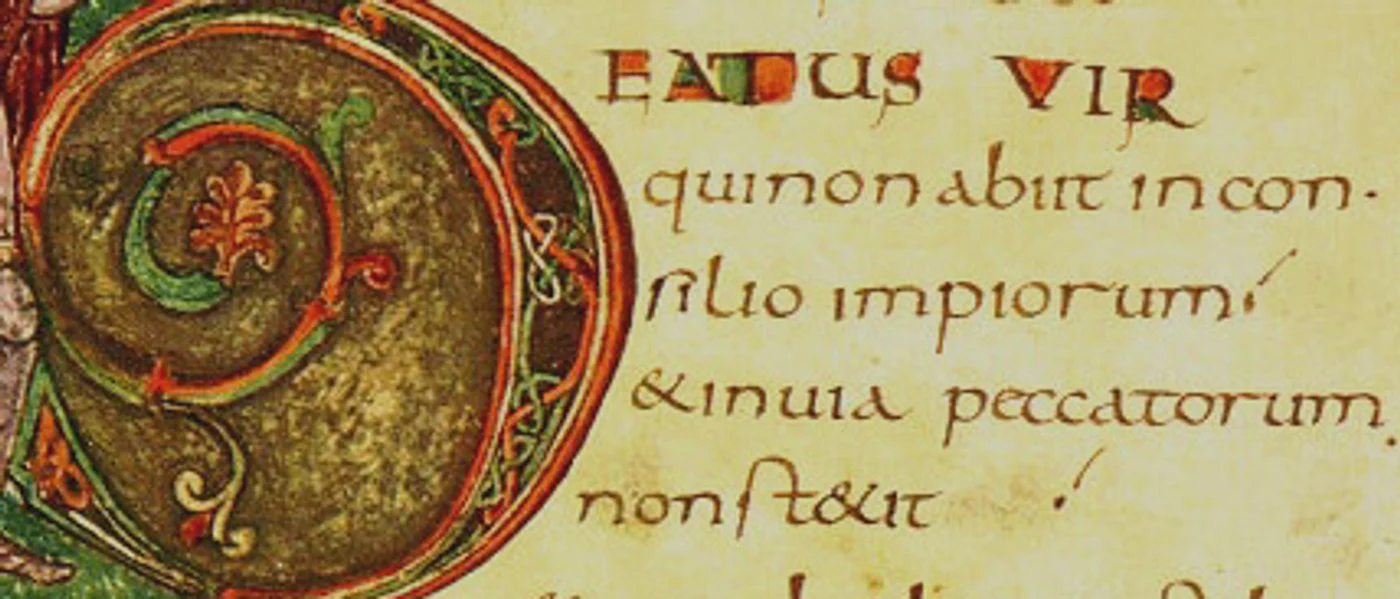 BEATUS VIR
quinon abiit incon·
silio impiorum·
&inuia peccatorum,
non st&it ·